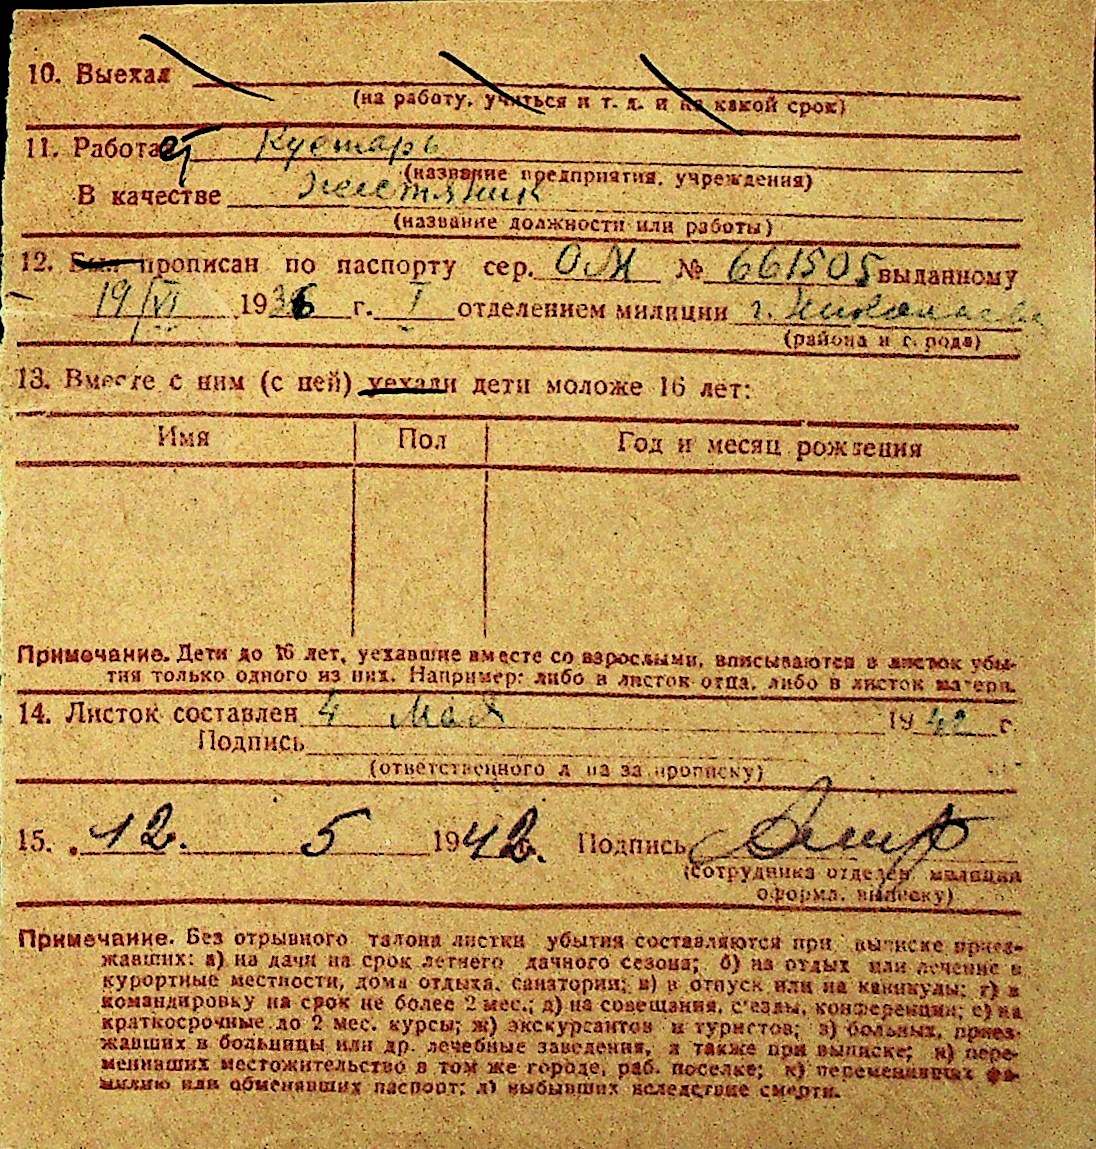 10. Выехал
(на работу, учиться и т. д. и на какой срок)
11. Работает Кустарь
(название предприятия, учреждения)
В качестве жестяник
(название должности или работы)
12. Был прописан по паспорту сер. ОМ № 661505 выданному
19/VI 1936 г. I отделением милиции г. Николаева
(района и города)
13. Вместе с ним (с ней) уехали дети моложе 16 лет:
Имя Пол Год и месяц рождения
Примечание. Дети до 16 лет, уехавшие вместе со взрослыми, вписываются в листок убы-
тия только одного из них. Например: либо в листок отца, либо в листок матери.
14. Листок составлен 4 Мая 1942 г.
Подпись
(ответственного лица за прописку)
15. 12. 5 1942. Подпись
(сотрудника отделен. милиции
оформ. выписку)
Примечание. Без отрывного талона листки убытия составляются при выписке приез-
жавших: а) на дачи на срок летнего дачного сезона; б) на отдых или лечение в
курортные местности, дома отдыха, санатории; в) в отпуск или на каникулы; г) в
командировку на срок не более 2 мес.; д) на совещания, с'езды, конференции; е) на
краткосрочные до 2 мес. курсы; ж) экскурсантов и туристов; з) больных, приез-
жавших в больницы или др. лечебные заведения, а также при выписке; и) пере-
менивших местожительство в том же городе, раб. поселке; к) переменивших фа-
милию или обменявших паспорт; л) выбывших вследствие смерти.